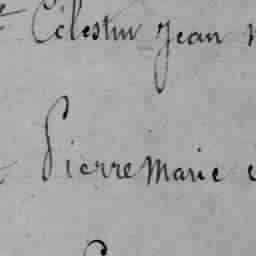 Célestin Jean
Pierre Marie